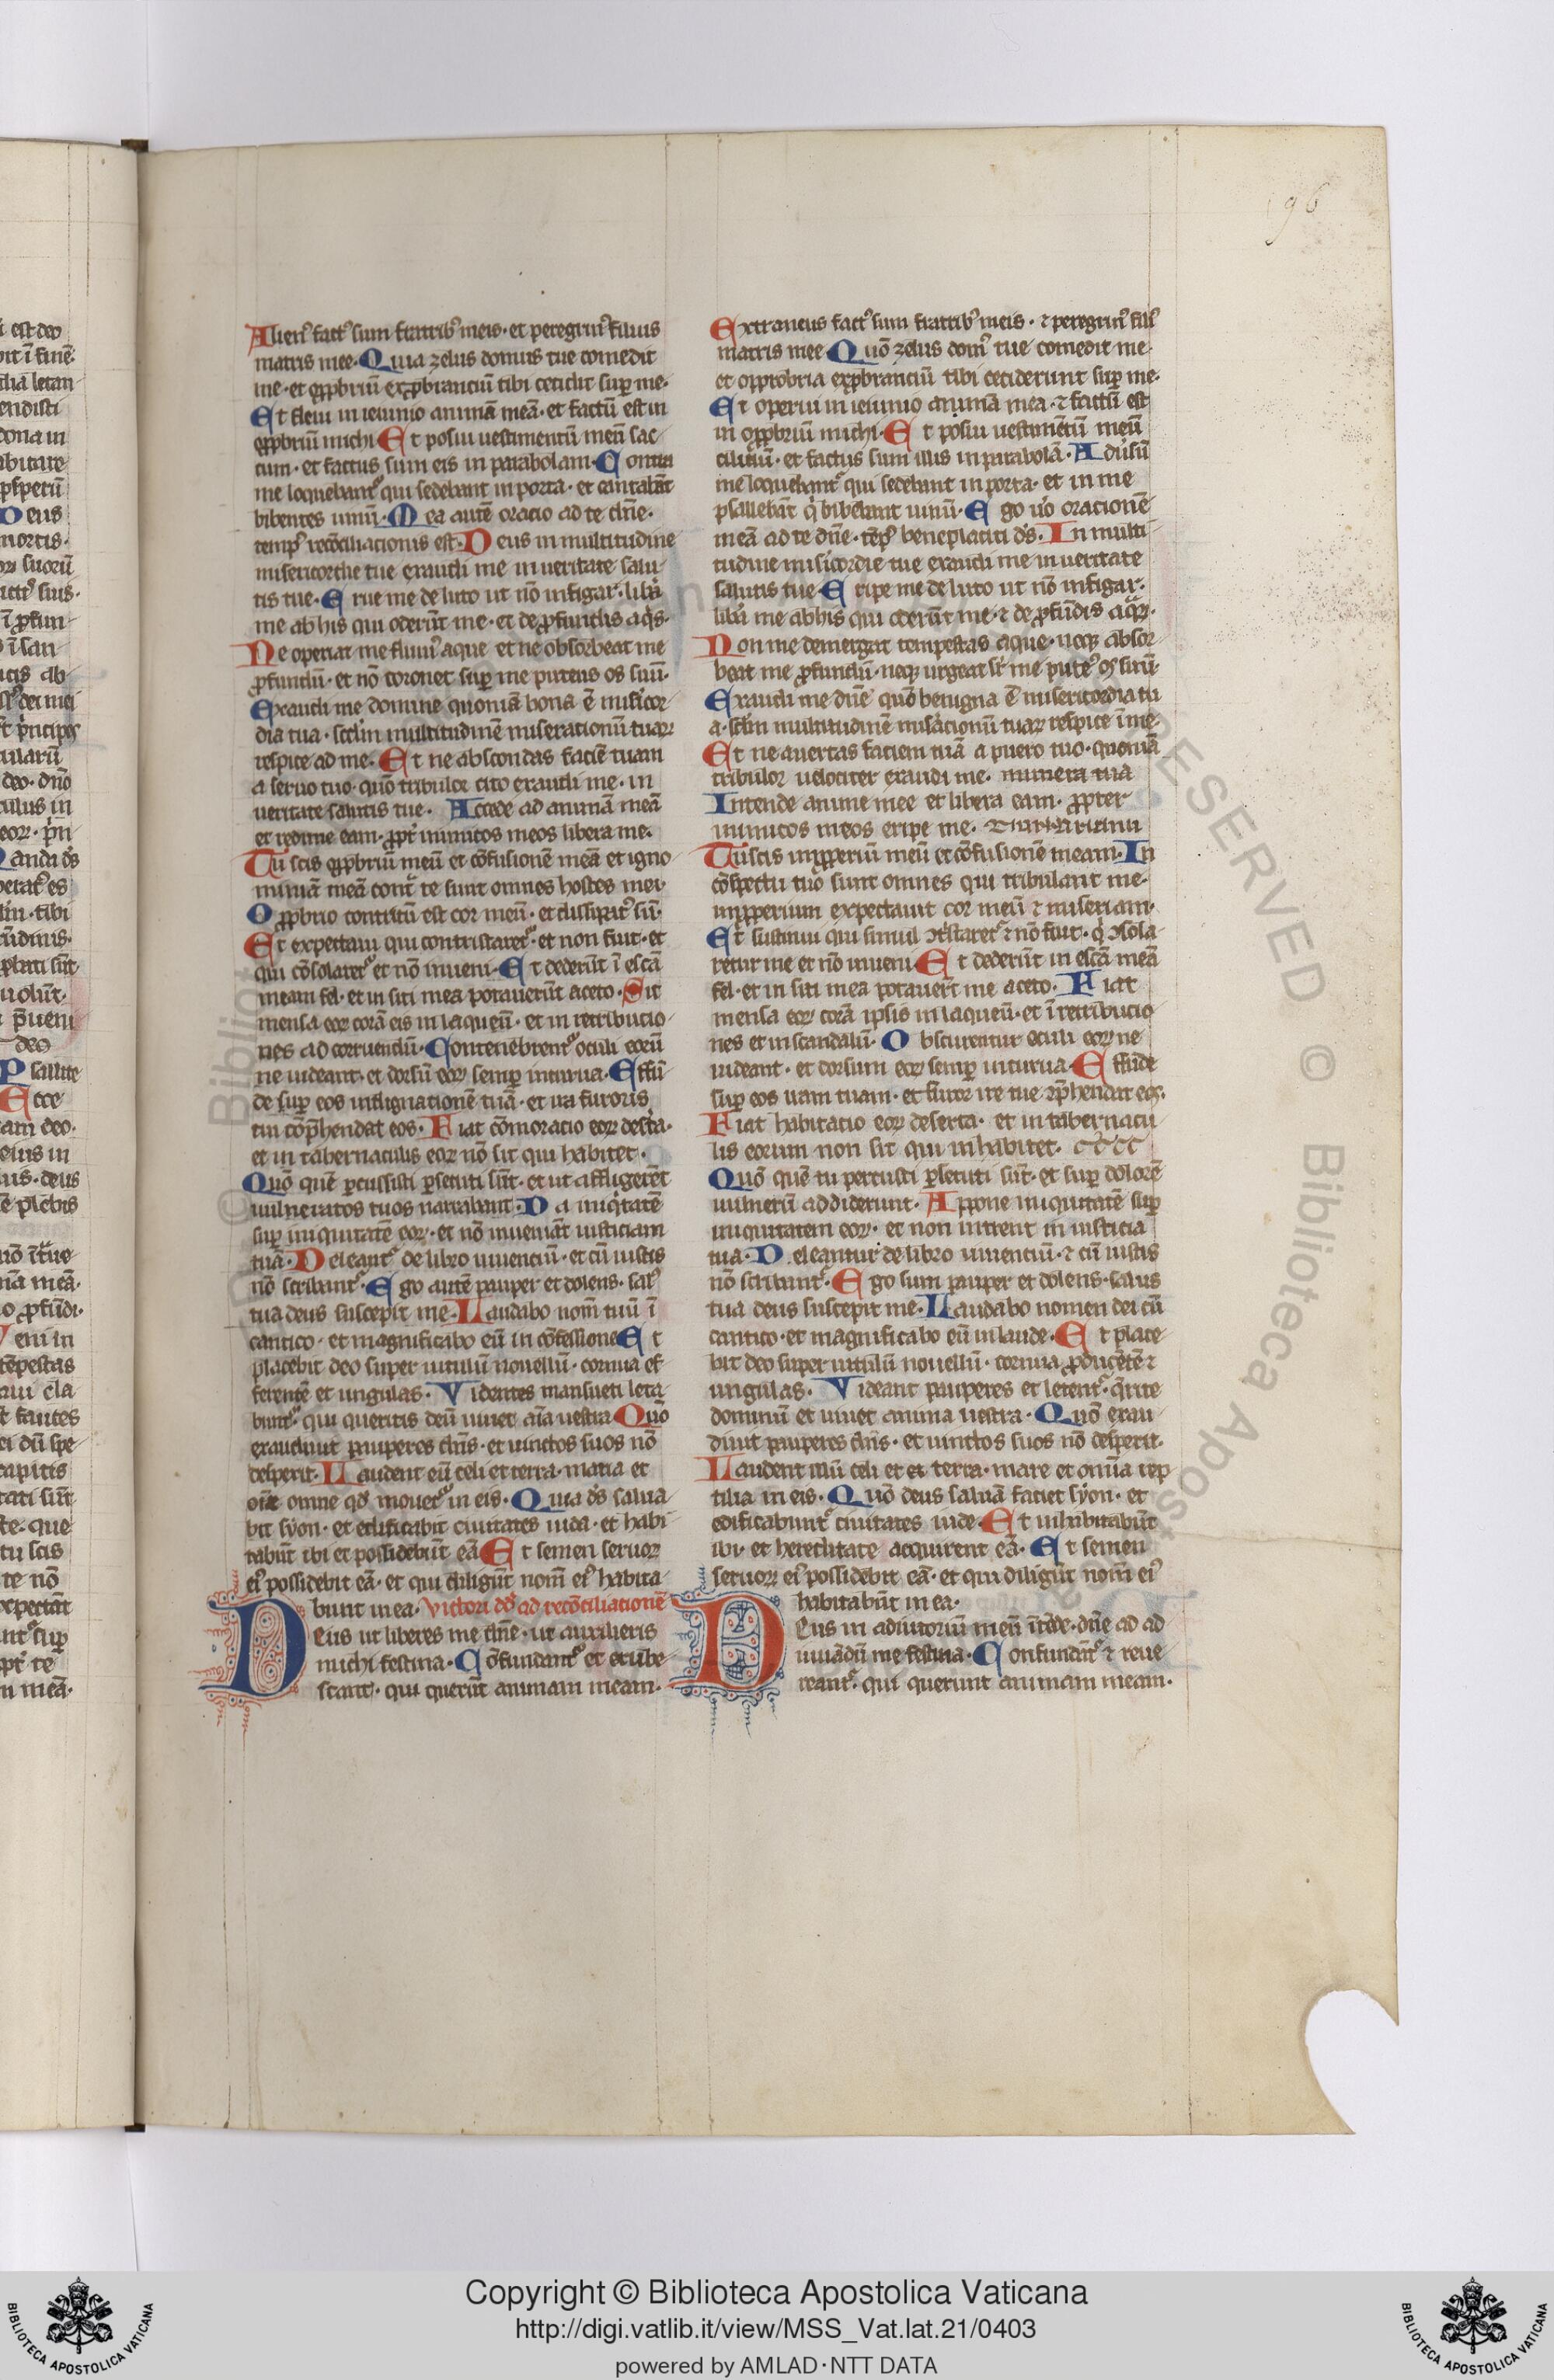 96
Alien᷒ fact᷒ sum fratrib᷒ meis · et peregrin᷒ filiis
matris mee · Quia zelus domus tue comedit
me · et opp̱briũ exp̱branciũ tibi cecidit sup̱ me ·
Et fleui in ieiunio animã meã · et factũ est in
opp̱briũ michi Et posui uestimentũ meũ sac
cum · et factus sum eis in parabolam · Contra
me loquebant᷑ qui sedebant in porta · et cantabãt
bibentes uinũ · Mea autẽ oracio ad te dñe ·
temp᷒ recõciliacionis est · Deus in multitudine
misericordie tue exaudi me in ueritate salu
tis tue · Erue me de luto ut nõ infigar · lib̾a
me ab his qui oderũt me · et de p̱fundis aq̃s ·
Ne operiat me fluui᷒ aque et ne obsorbeat me
p̱fundũ · et nõ coronet sup̱ me puteus os suũ ·
Exaudi me domine quoniã bona ẽ mis̾icor
dia tua · scd̃m multitudinẽ miserationũ tuaꝝ
respice ad me · Et ne abscondas faciẽ tuam
a seruo tuo · quõ tribulor cito exaudi me · in
ueritate salutis tue · Accede ad animã meã
et redime eam · p̱pt̾ inimicos meos libera me ·
Tu scis opp̱briũ meũ et cõfusionẽ meã et igno
miniã meã cont᷑ te sunt omnes hostes mei ·
Opp̱brio contritũ est cor meũ · et dissipat᷒ sũ ·
Et expectaui qui contristaret᷑ · et non fuit · et
qui cõsolaret᷑ et nõ inueni · Et dederũt ĩ escã
meam fel · et in siti mea potauerũt aceto · Sit
mensa eoꝝ corã eis in laqueũ · et in retributio
nes ad corruendũ · Contenebrent᷑ oculi eorũ
ne uideant · et dorsũ eoꝝ semp̱ incurua · Effũ
de sup̱ eos indignationẽ tuã · et ira furoris
tui cõp̃hendat eos · Fiat cõmoratio eoꝝ des̾ta ·
et in tabernaculis eoꝝ nõ sit qui habitet ·
Quõ quẽ p̱cussisti p̱secuti sũt · et ut affligerẽt
uulneratos tuos narrabant · Da iniq̾tatẽ
sup̱ iniquitatẽ eoꝝ · et nõ inueniãt iusticiam
tuã · Deleant᷑ de libro uiuenciũ · et cũ iustis
nõ scribant᷑ · Ego autẽ pauper et dolens · sal᷒
tua deus suscepit me · Laudabo nom̃ tuũ ĩ
cantico · et magnificabo eũ in cõfessione Et
placebit deo super uitulũ nouellũ · cornua ef
ferentẽ et ungulas · Videntes mansueti leta
bunt᷑ qui queritis deũ uiuet aĩa uestra Quõ
exaudiuit pauperes dñs · et uinctos suos nõ
despexit · Laudent eũ celi et terra · maria et
omne qd̃ mouet᷑ in eis · Quia d̃s salua
bit syon · et edificabit ciuitates iuda · et habi
tabũt ibi et possidebũt eã Et semen seruoꝝ
ei᷒ possidebit eã · et qui diligũt nom̃ ei᷒ habita
bunt in ea · Victori dd̾ ad recõciliationẽ
Deus ut liberes me dñe · ut auxilieris
michi festina · Cõfundant᷑ et erube
scant · qui querũt animam meam ·
Extraneus fact᷒ sum fratrib᷒ meis · ⁊ peregrin᷒ fili᷒
matris mee Quõ zelus dom᷒ tue comedit me
et opprobria exp̱branciũ tibi ceciderunt sup̱ me ·
Et operui in ieiunio animã mea · ⁊ factũ est
in opp̱briũ michi · Et posui uestimẽtũ meũ
ciliciũ · et factus sum illis in parabolã · Adu̾sũ
me loquebant᷑ qui sedebant in porta · et in me
psallebãt q̾ bibebant uinũ · Ego u̾o oracionẽ
meã ad te dñe · tẽp᷒ beneplaciti d̃s · In multi
tudine mis̾icordie tue exaudi me in ueritate
salutis tue · Eripe me de luto ut nõ infigar ·
lib̾a me ab his qui oderũt me · ⁊ de p̱fũdis aq̃ꝝ ·
Non me demergat tempestas aque · neqꝫ absor
beat me p̱fundũ · neqꝫ urgeat sr̃ me pute᷒ os suũ ·
Exaudi me dñe quõ benigna ẽ misericordia tu
a · scd̃m multitudinẽ mis̾acionũ tuaꝝ respice ĩ me ·
Et ne auertas faciem tuã a puero tuo · quoniã
tribulor uelociter exaudi me ·
Intende anime mee et libera eam · p̱pter
inimicos meos eripe me ·
Tu scis imp̱periũ meũ et cõfusionẽ meam · In
cõspectu tuo sunt omnes qui tribulant me ·
imp̱perium expectauit cor meũ ⁊ miseriam ·
Et sustinui qui simul ꝯt̾staret᷑ ⁊ nõ fuit · q̾ ꝯsola
retur me et nõ inueni · Et dederũt in escã meã
fel · et in siti mea potauer̃t me aceto · Fiat
mensa eoꝝ corã ipsis in laqueũ · et ĩ retributio
nes et in scandalũ · Obscurentur oculi eoꝝ ne
uideant · et dorsum eoꝝ semp̱ incurua · Effũde
sup̱ eos iram tuam · et furor ire tue ꝯp̃hendat eos ·
Fiat habitatio eoꝝ deserta · et in tabernacu
lis eorum non sit qui inhabitet ·
Quõ quẽ tu percusti p̱secuti sũt · et sup̱ dolorẽ
uulnerũ addiderunt · Appone iniquitatẽ sup̱
iniquitatem eoꝝ · et non intrent in iusticia
tua · Deleantur de libro uiuenciũ · ⁊ cũ iustis
nõ scribant᷑ · Ego sum pauper et dolens · salus
tua deus suscepit me · Laudabo nomen dei cũ
cantico · et magnificabo eũ in laude · Et place
bit deo super uitulũ nouellũ · cornua p̱ducẽtẽ ⁊
ungulas · Videant pauperes et letent᷑ · q̃rite
dominũ et uiuet anima uestra · Quõ exau
diuit pauperes dñs · et uinctos suos nõ despexit ·
Laudent illũ celi et et terra · mare et omĩa rep
tilia in eis · Quõ deus saluã faciet syon · et
edificabunt᷑ ciuitates iude · Et inhabitabũt
ibi · et hereditate acquirent eã · Et semen
seruoꝝ ei᷒ possidebit eã · et qui diligũt nom̃ ei᷒
habitabũt in ea ·
Deus in adiutoriũ meũ ĩtẽde · dñe ad ad
iuuãdũ me festina · Confundãt᷑ ⁊ reue
reant᷑ · qui querunt animam meam ·
Copyright © Biblioteca Apostolica Vaticana
http://digi.vatlib.it/view/MSS_Vat.lat.21/0403
powered by AMLAD · NTT DATA
BIBLIOTECA APOSTOLICA VATICANA
BIBLIOTECA APOSTOLICA VATICANA